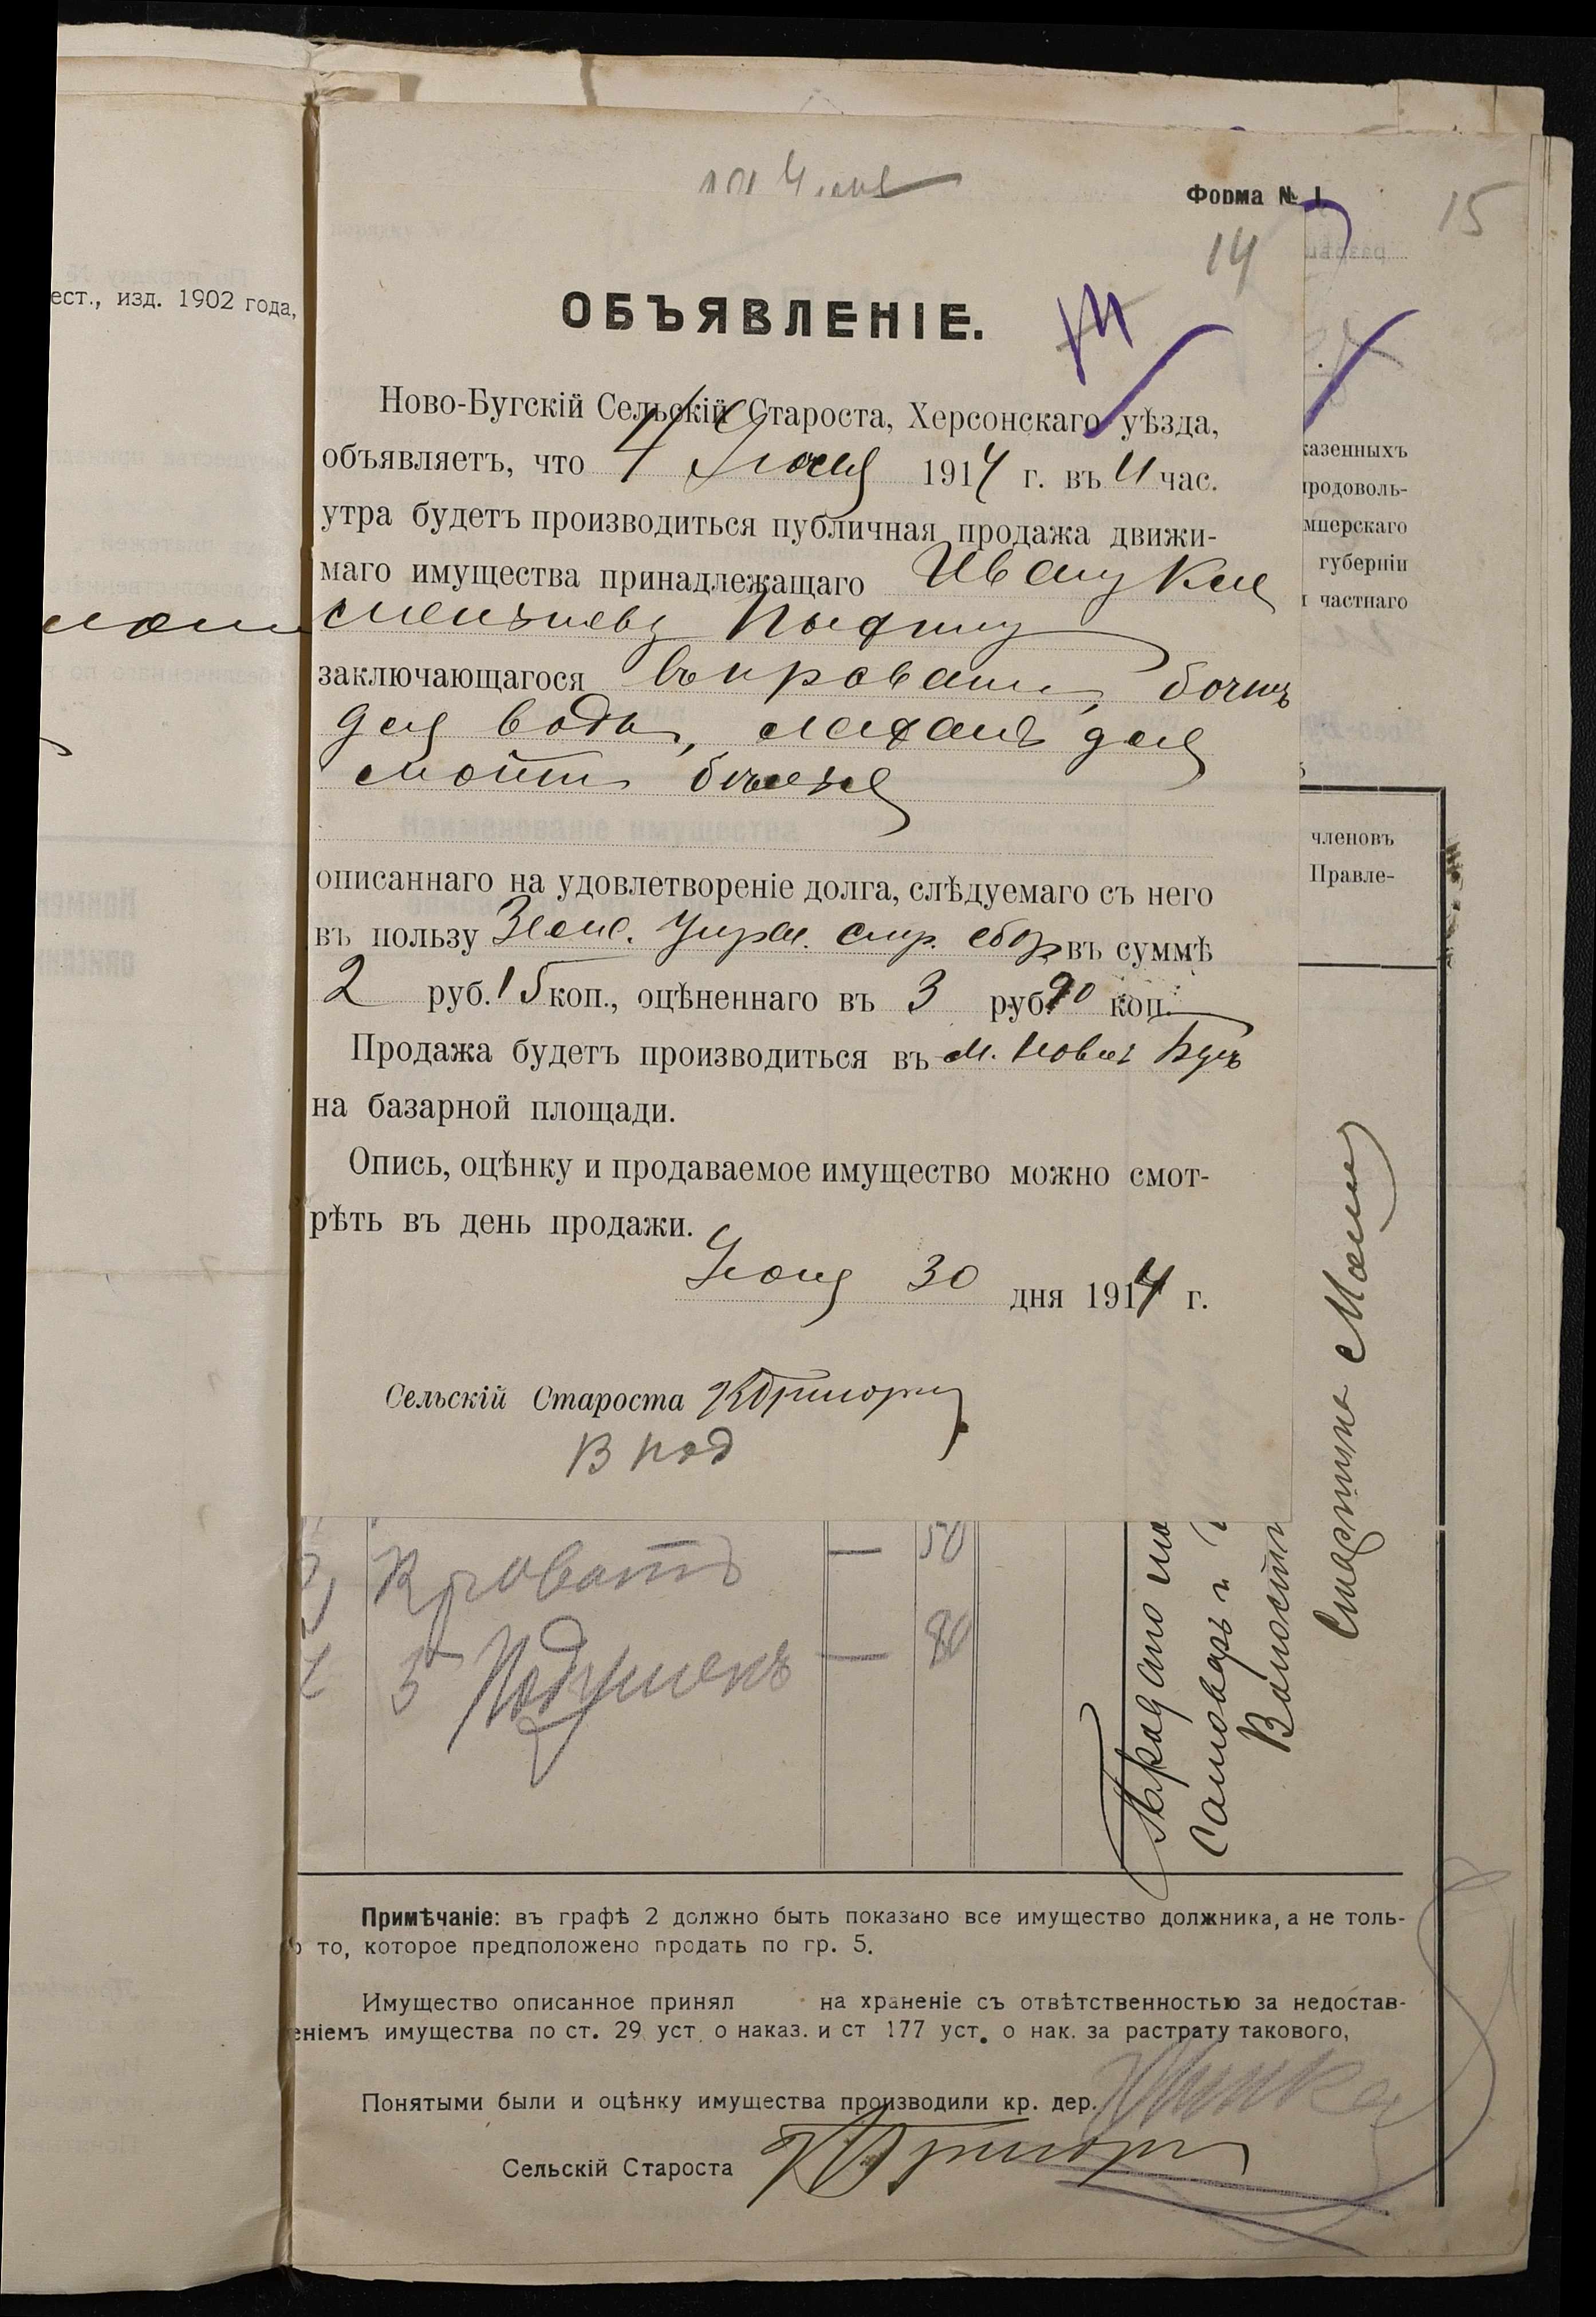 ест., изд. 1902 года,
Форма № 1
15
14
ОБЪЯВЛЕНІЕ.
Ново-Бугскій Сельскій Староста, Херсонскаго уѣзда,
объявляетъ, что 4 Іюля 1914 г. въ 11 час.
утра будетъ производиться публичная продажа движи-
маго имущества принадлежащаго Ивану Кле
заключающагося въ кровати, бочкѣ
для воды, лахань для
мойти бѣлья
описаннаго на удовлетвореніе долга, слѣдуемаго съ него
въ пользу Земс. Упра. стр. сбор въ суммѣ
2 руб. 15 коп., оцѣненнаго въ 3 руб. 90 коп.
Продажа будетъ производиться въ м. Новый Бугъ
на базарной площади.
Опись, оцѣнку и продаваемое имущество можно смот-
рѣть въ день продажи.
Іюня 30 дня 1914 г.
Сельскій Староста
казенныхъ
продоволь-
губерніи
частнаго
членовъ
Правле-
Кровать — 50
5 Подушекъ — 80
Примѣчаніе: въ графѣ 2 должно быть показано все имущество должника, а не толь-
то, которое предположено продать по гр. 5.
Имущество описанное принял на храненіе съ отвѣтственностью за недостав-
еніемъ имущества по ст. 29 уст. о наказ. и ст 177 уст. о нак. за растрату такового,
Понятыми были и оцѣнку имущества производили кр. дер.
Сельскій Староста